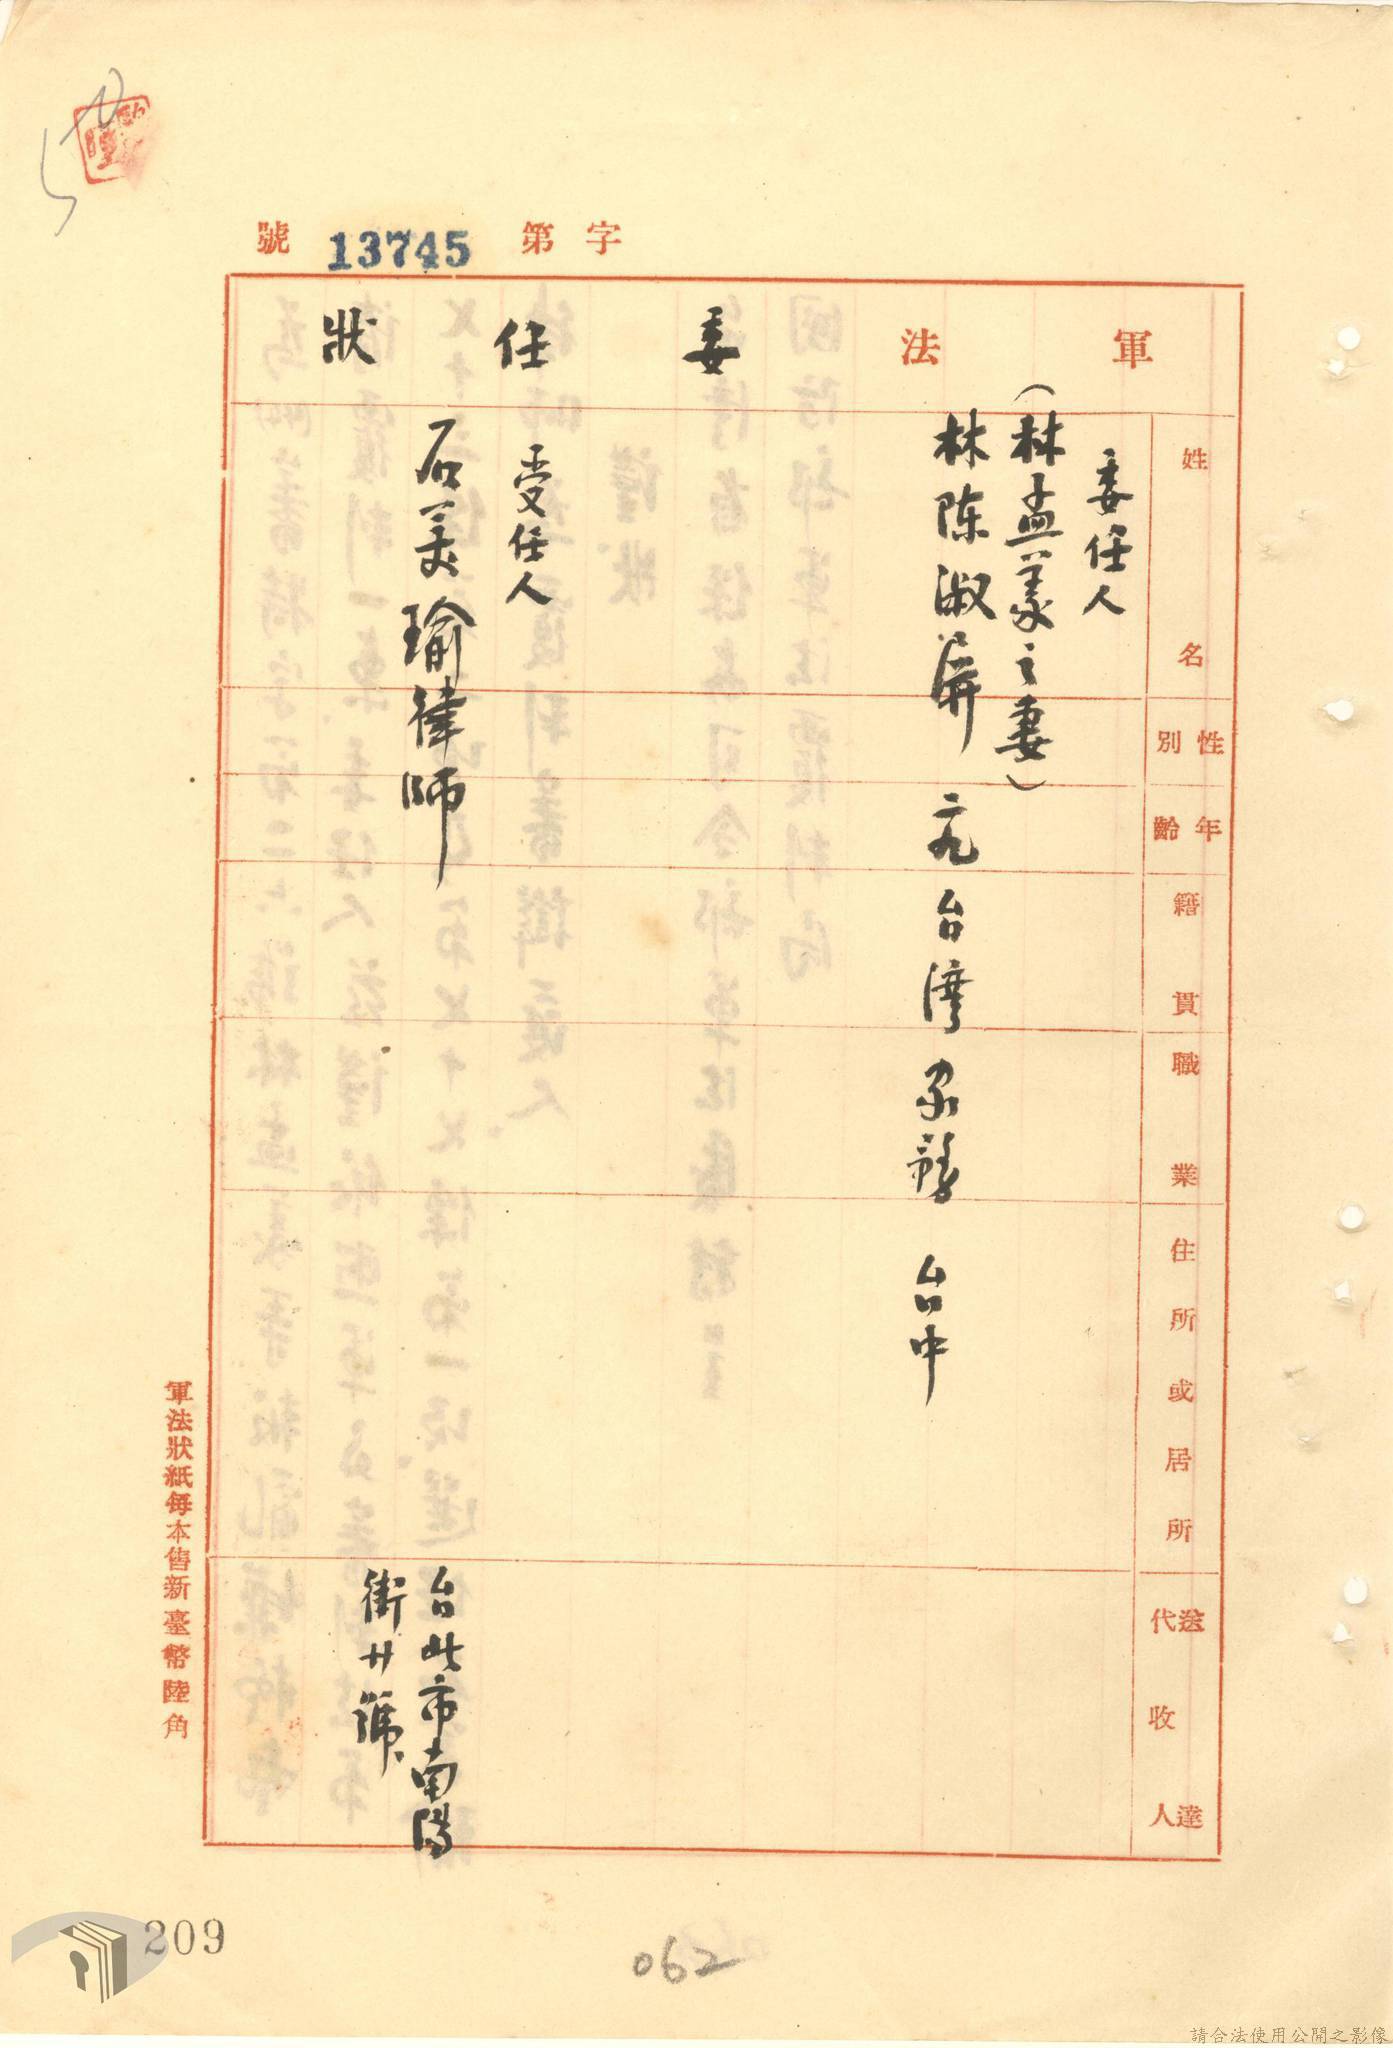 字第13745號
軍法委任狀
姓名
性別
年齡
籍貫
職業
住所或居所
送達代收人
委任人
（林孟義之妻）
林陈淑屏 元 台湾 家務 台中
受任人
石美瑜律師
台北市南陽
街廿號
軍法狀紙每本售新臺幣陸角
209
062
請合法使用公開之影像